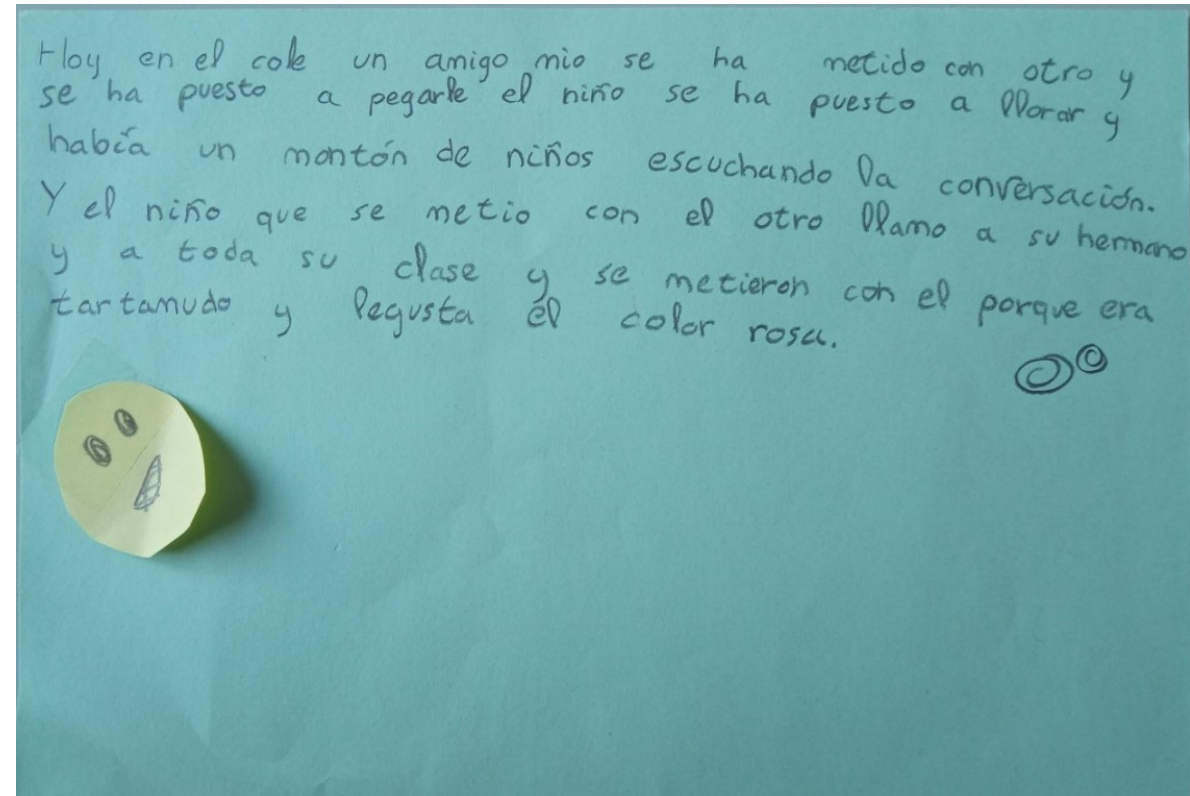 Hoy en el cole un amigo mio se ha metido con otro y
se ha puesto a pegarle el niño se ha puesto a llorar y
había un montón de niños escuchando la conversación.
Y el niño que se metio con el otro llamo a su hermano
y a toda su clase y se metieron con el porque era
tartamudo y legusta el color rosa.